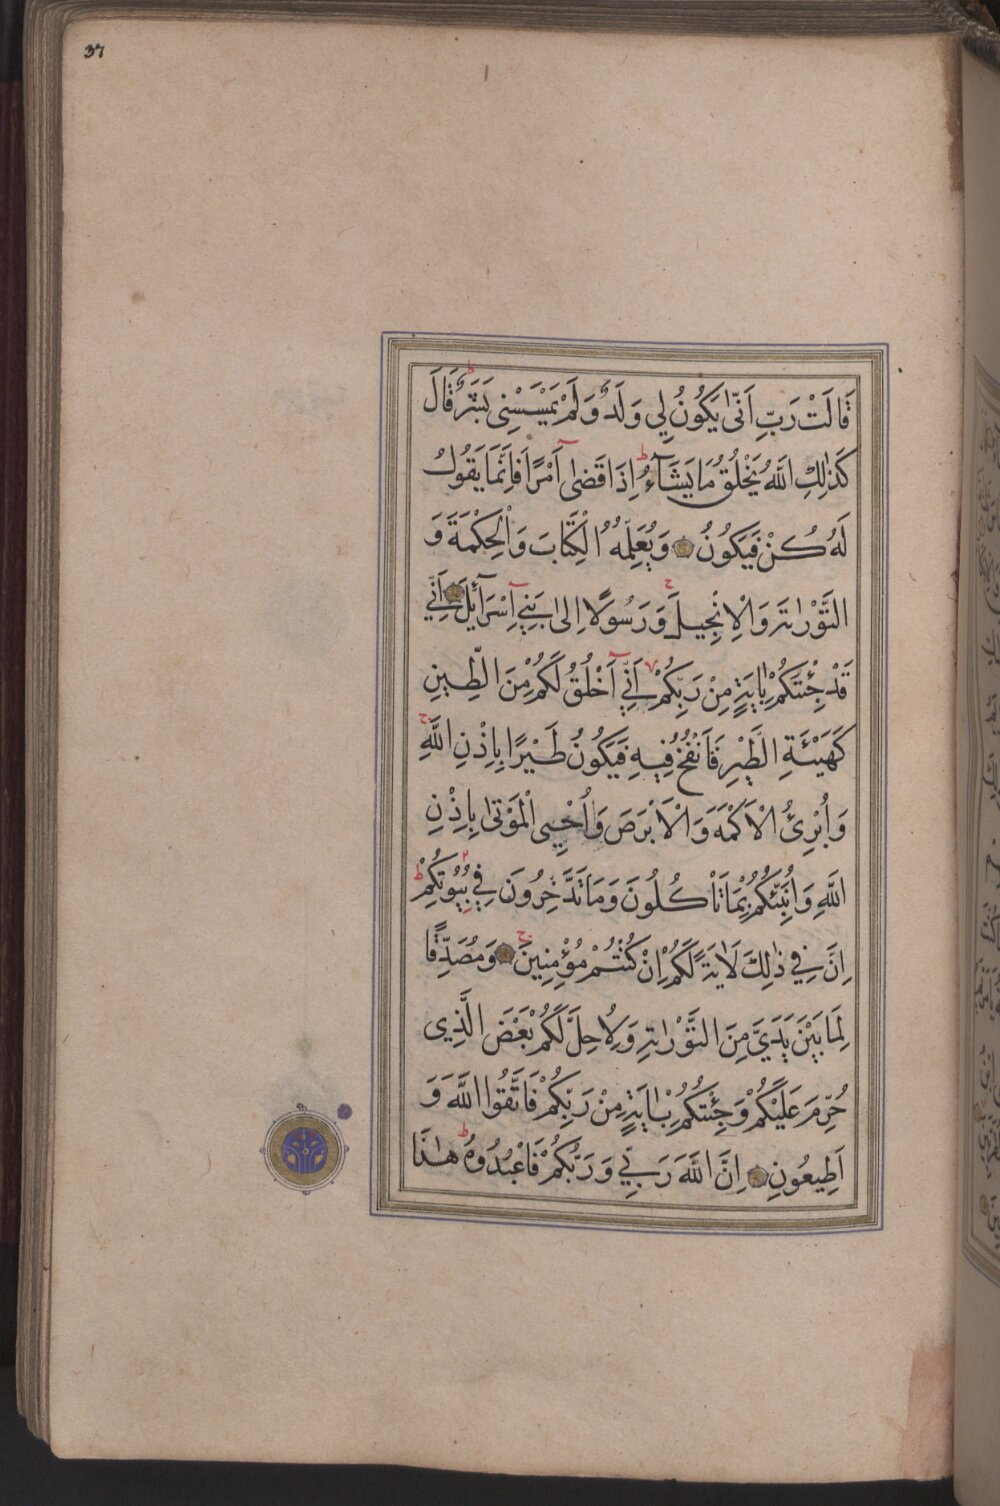 37
قَالَتْ رَبِّ اَنّٰى يَكُونُ لِي وَلَدٌ وَلَمْ يَمْسَسْنِى بَشَرٌ قَالَ
كَذٰلِكِ اللّٰهُ يَخْلُقُ مَا يَشَآءُ اِذَا قَضٰى اَمْرًا فَاِنَّمَا يَقُولُ
لَهُ كُنْ فَيَكُونُ وَيُعَلِّمُهُ الْكِتَابَ وَالْحِكْمَةَ وَ
التَّوْرٰيةَ وَالْاِنْجِيلَ وَرَسُولًا اِلٰى بَنِي اِسْرَآئِلَ اَنِّي
قَدْ جِئْتُكُمْ بِاٰيَةٍ مِنْ رَبِّكُمْ اَنِّي اَخْلُقُ لَكُمْ مِنَ الطِّينِ
كَهَيْئَةِ الطَّيْرِ فَاَنْفُخُ فِيهِ فَيَكُونُ طَيْرًا بِاِذْنِ اللّٰهِ
وَاُبْرِئُ الْاَكْمَهَ وَالْاَبْرَصَ وَاُحْيِى الْمَوْتٰى بِاِذْنِ
اللّٰهِ وَاُنَبِّئُكُمْ بِمَا تَاْكُلُونَ وَمَا تَدَّخِرُونَ فِي بُيُوتِكُمْ
اِنَّ فِي ذٰلِكَ لَاٰيَةً لَكُمْ اِنْ كُنْتُمْ مُؤْمِنِينَ وَمُصَدِّقًا
لِمَا بَيْنَ يَدَيَّ مِنَ التَّوْرٰيةِ وَلِاُحِلَّ لَكُمْ بَعْضَ الَّذِى
حُرِّمَ عَلَيْكُمْ وَجِئْتُكُمْ بِاٰيَةٍ مِنْ رَبِّكُمْ فَاتَّقُوا اللّٰهَ وَ
اَطِيعُونِ اِنَّ اللّٰهَ رَبِّي وَرَبُّكُمْ فَاعْبُدُوهُ هٰذَا